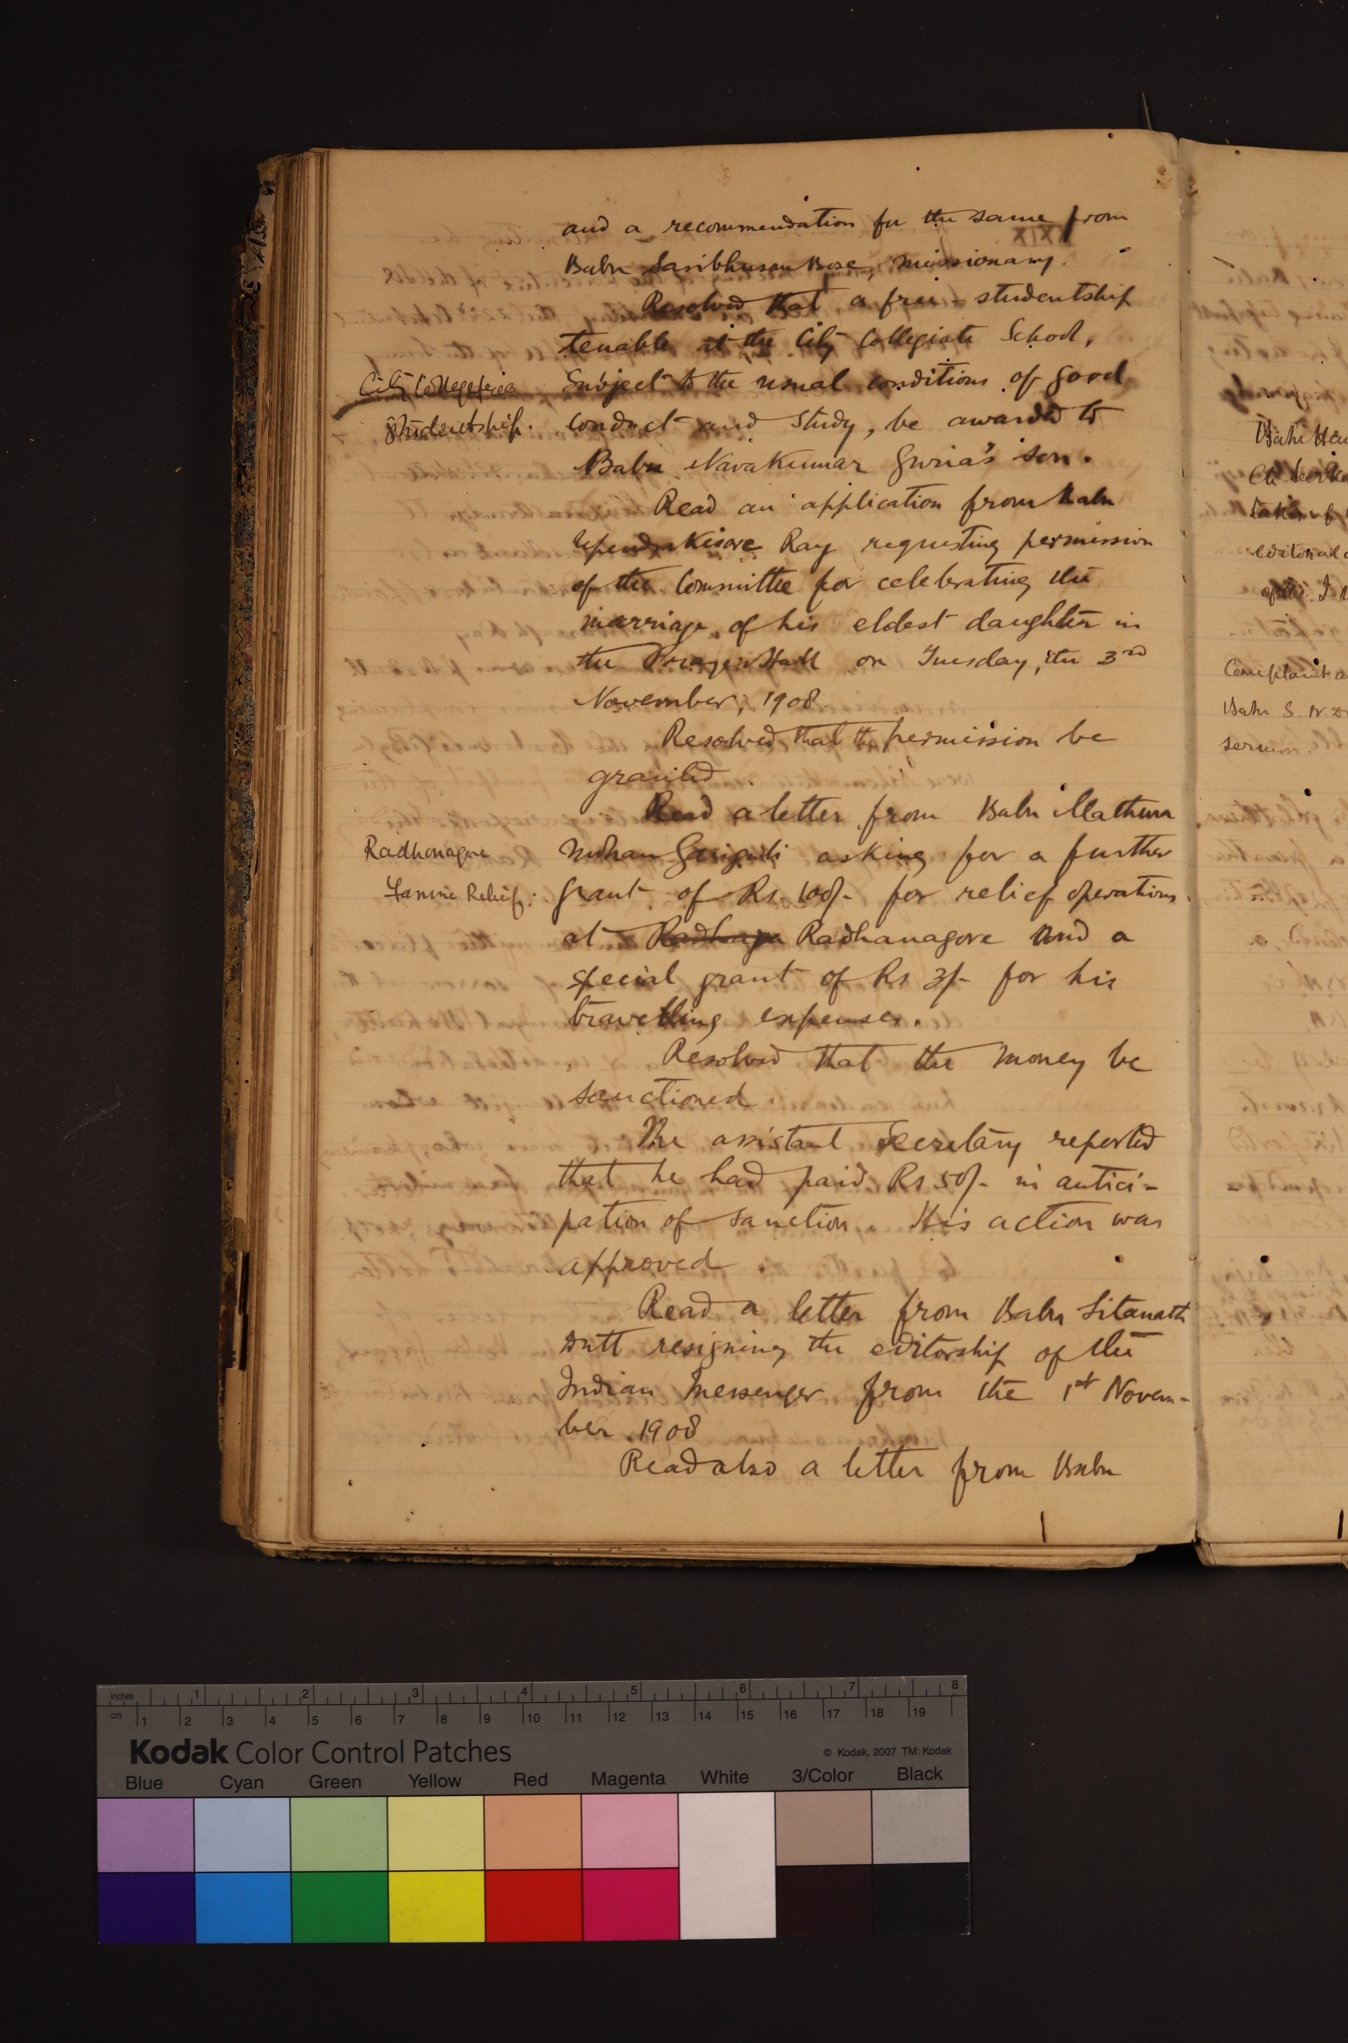 and a recommendation for the same from
Babu Sasibhusan Bose, missionary.
Resolved that a free-studentship
tenable at the City Collegiate School,
City College free
studentship.
Subject to the usual conditions of good
conduct and study, be awarded to
Babu Navakumar son.
Read an application from Babu
Upendrakisore Ray requesting permission
of the Committee for celebrating the
marriage of his eldest daughter in
the Prayer Hall on Tuesday, the 3rd
November, 1908.
Resolved that the permission be
granted.
Read a letter from Babu Mathura
Radhanagore
Famine Relief:
Mohan asking for a further
grant of Rs. 100/- for relief operations
at Radhanagore and a
special grant of Rs 3/- for his
travelling expenses.
Resolved that the money be
sanctioned.
The assistant Secretary reported
that he had paid Rs 50/- in antici-
pation of sanction. His action was
approved.
Read a letter from Babu Sitanath
Dutt resigning the editorship of the
Indian Messenger from the 1st Novem-
ber 1908
Read also a letter from Babu
Complaint
Babu S. N. D
sermon.
inches 1 2 3 4 5 6 7 8
cm 1 2 3 4 5 6 7 8 9 10 11 12 13 14 15 16 17 18 19
Kodak Color Control Patches © Kodak, 2007 TM: Kodak
Blue Cyan Green Yellow Red Magenta White 3/Color Black